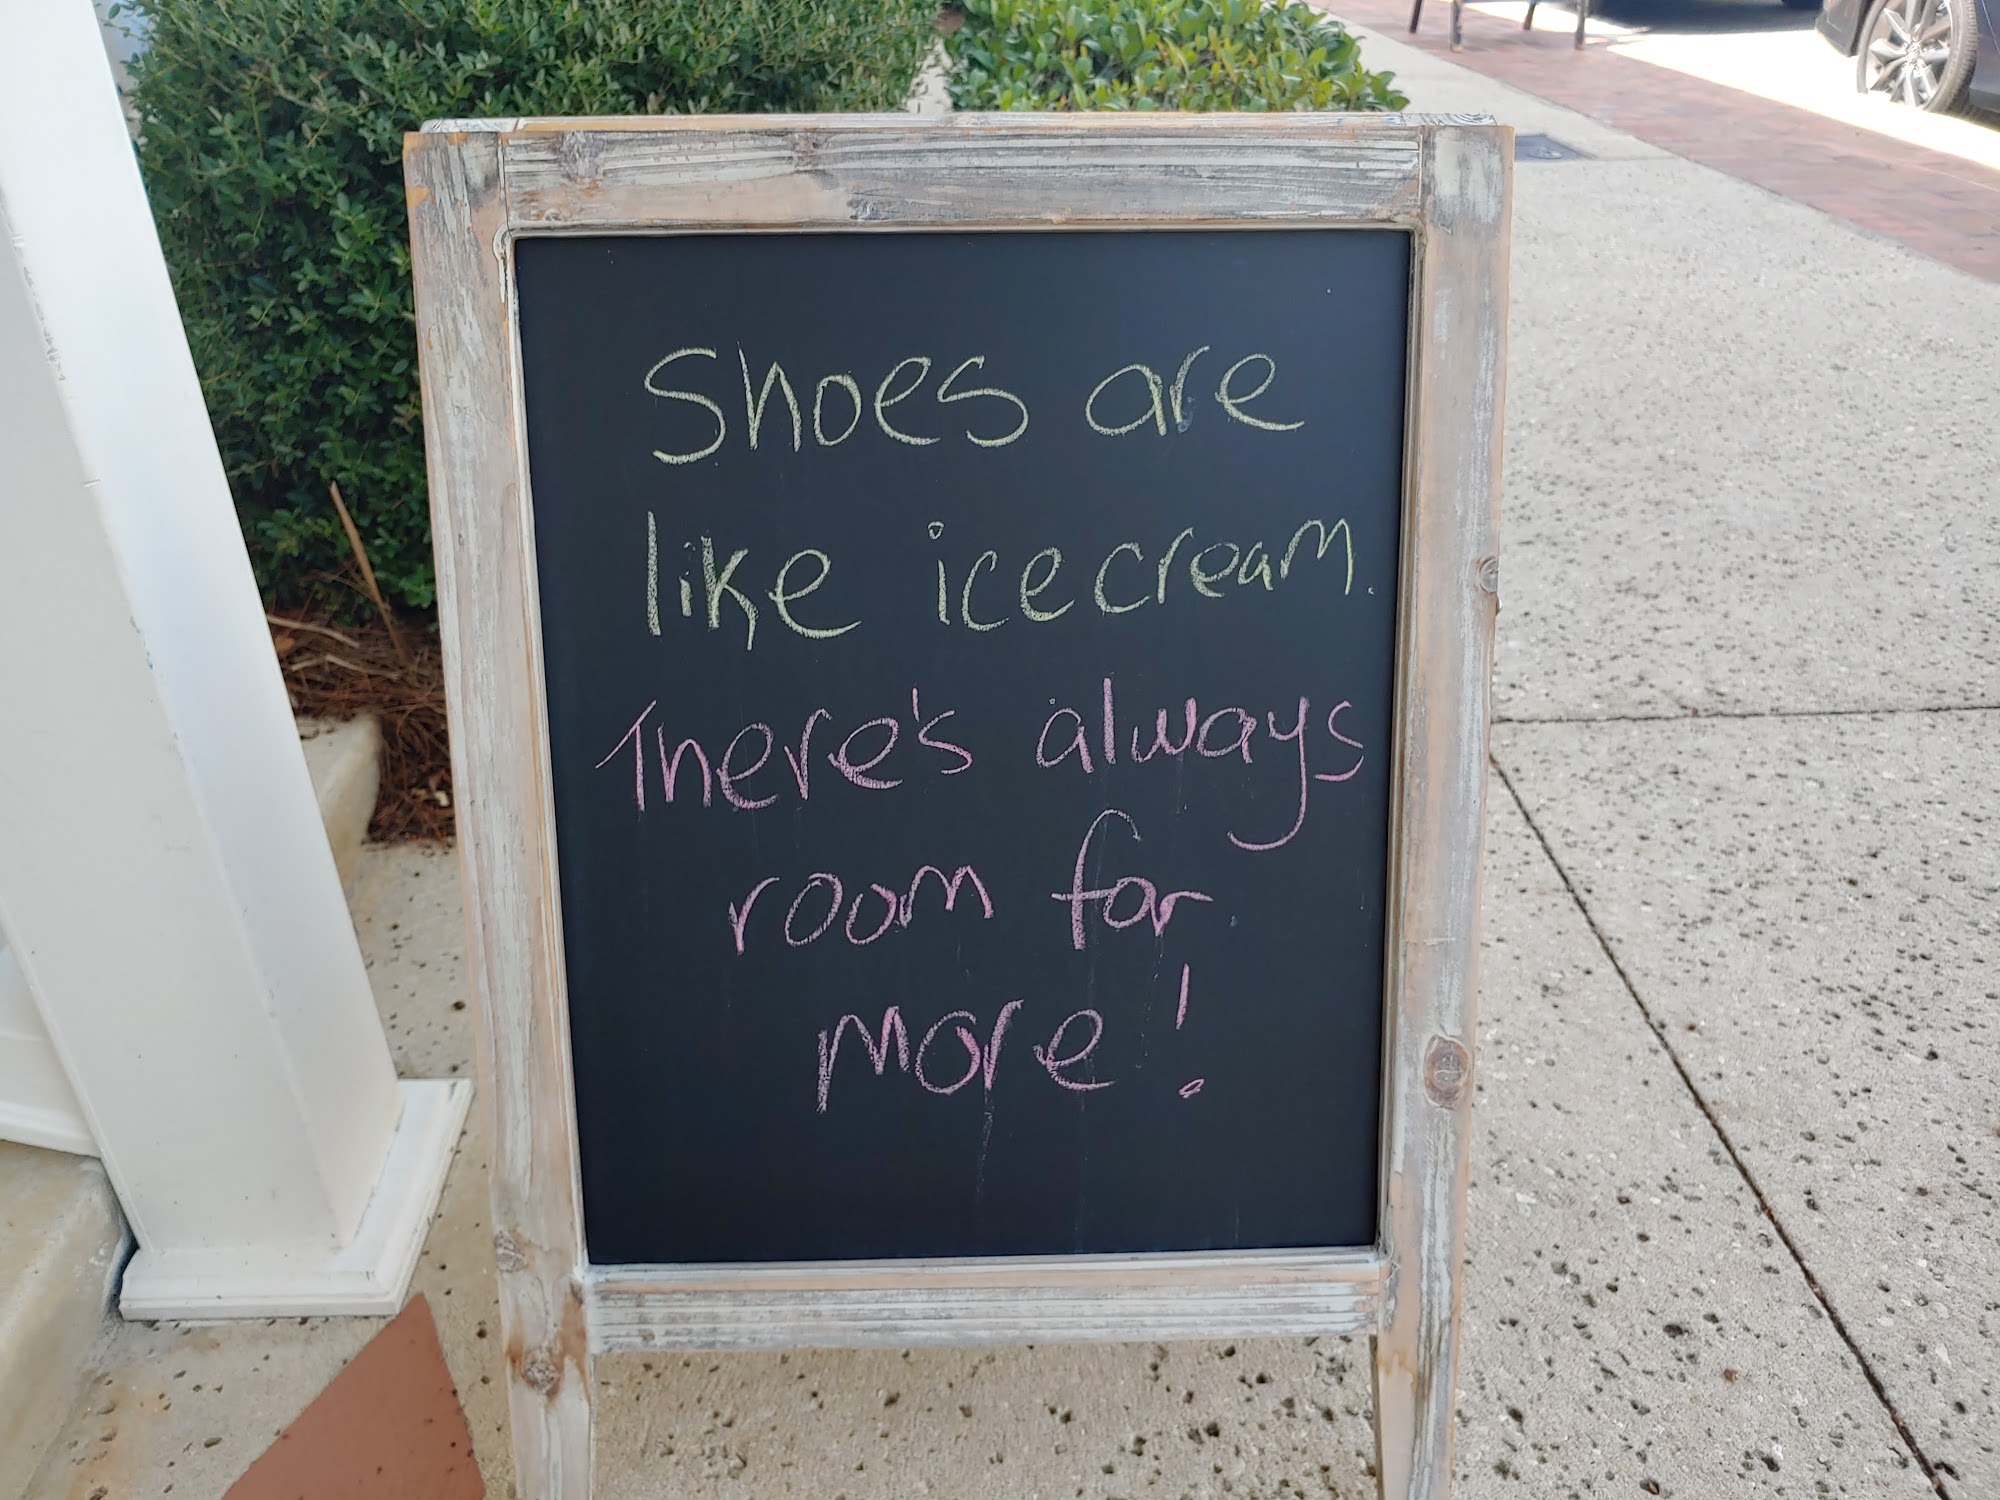 Shoes are
like icecream.
There's always
room for
more!